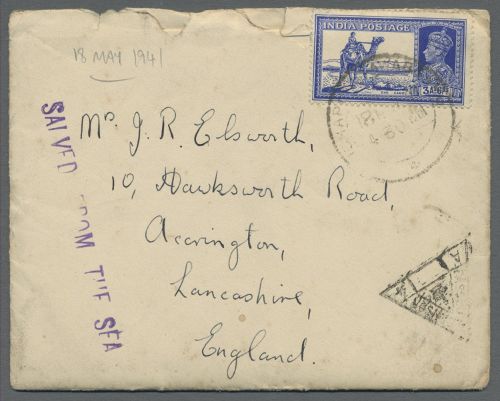 18 MAY 1941
INDIA POSTAGE
3As
SALVED FROM THE SEA
Mr. J. R. Elsworth,
10, Hawksworth Road,
Accrington,
Lancashire,
England.